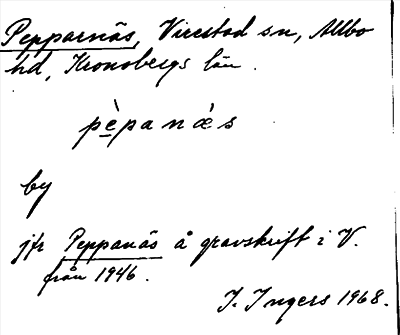 Pepparnäs, Virestad sn, Allbo
hd, Kronobergs län.
pèpanǽs
by
jfr Peppanäs å gravskrift i V.
från 1946.
I. Ingers 1968.